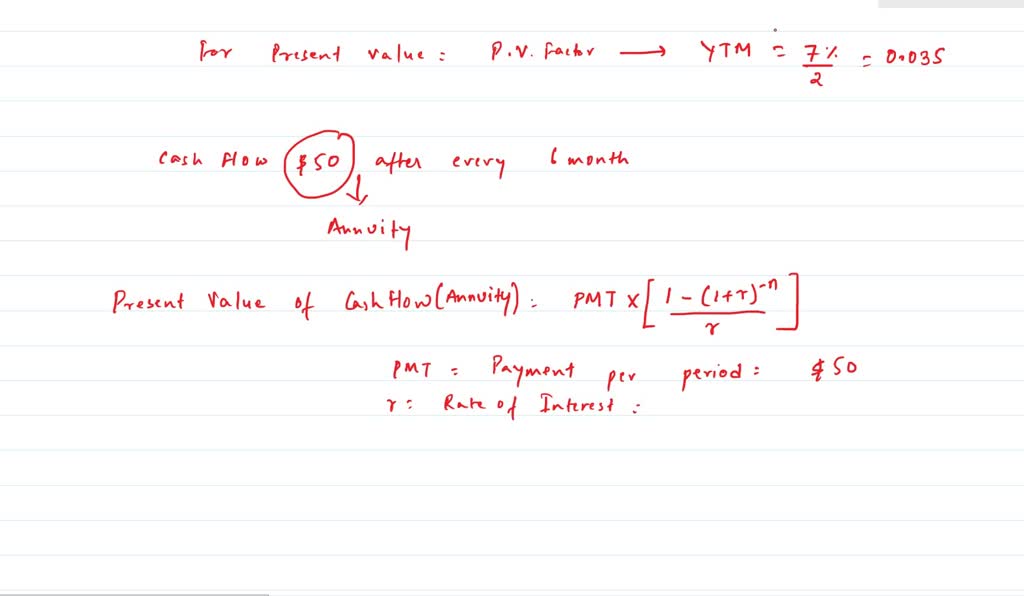 For Present Value : P.V. Factor → YTM = 7% / 2 = 0.035
Cash Flow $50 after every 6 month
Annuity
Present Value of Cash Flow (Annuity) : PMT × [ 1 - (1+r)^-n / r ]
PMT = Payment per period = $50
r = Rate of Interest :